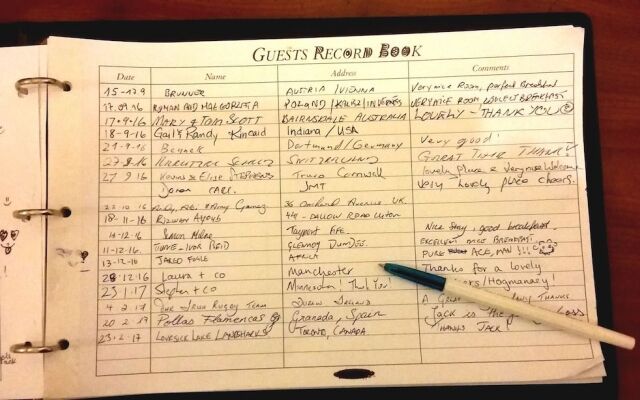 GUESTS RECORD BOOK
Date Name Address Comments
15-179 BRUNNER AUSTRIA/VIENNA Very nice Room, perfect Breakfast
17.09.16 ROMAN AND MALGORZATA POLAND VERY NICE ROOM BREAKFAST
17-9-16 MARY & TOM SCOTT BAIRNSDALE AUSTRALIA LOVELY - THANK YOU
18-9-16 Gail & Randy Kincaid Indiana/USA
21-9-16 Dortmund/Germany Very good!
27-9-16 SWITZERLAND GREAT TIME THANKS
27 9 16 Kevin & Elise Stephens Truro Cornwall Lovely place & Very nice Welcome
Very Lovely place cheers.
22-10-16 36 Orchard Avenue UK
18-11-16 RIZWAN AYOUB 44 - DALLOW ROAD LUTON
4-12-16 Simon Milne Tayport Fife Nice stay, good breakfast.
11-12-16. IVOR REID DUNDEE. EXCELLENT BREAKFAST!
13-12-16 JARGO AFRICA PURE ACE, MAN!!!
28-12-16 Laura + co Manchester Thanks for a lovely
23.1.17 Stephen + co Minnesota! Thank You /Hogmanay!
4.2.17 IRISH RUGBY TEAM DUBLIN IRELAND A THANKS
20.2.17 Pollas Flamencas Granada, Spain Jack is the
23.2.17 LOVESICK LAKE LANDSHARKS TORONTO, CANADA THANKS JACK!